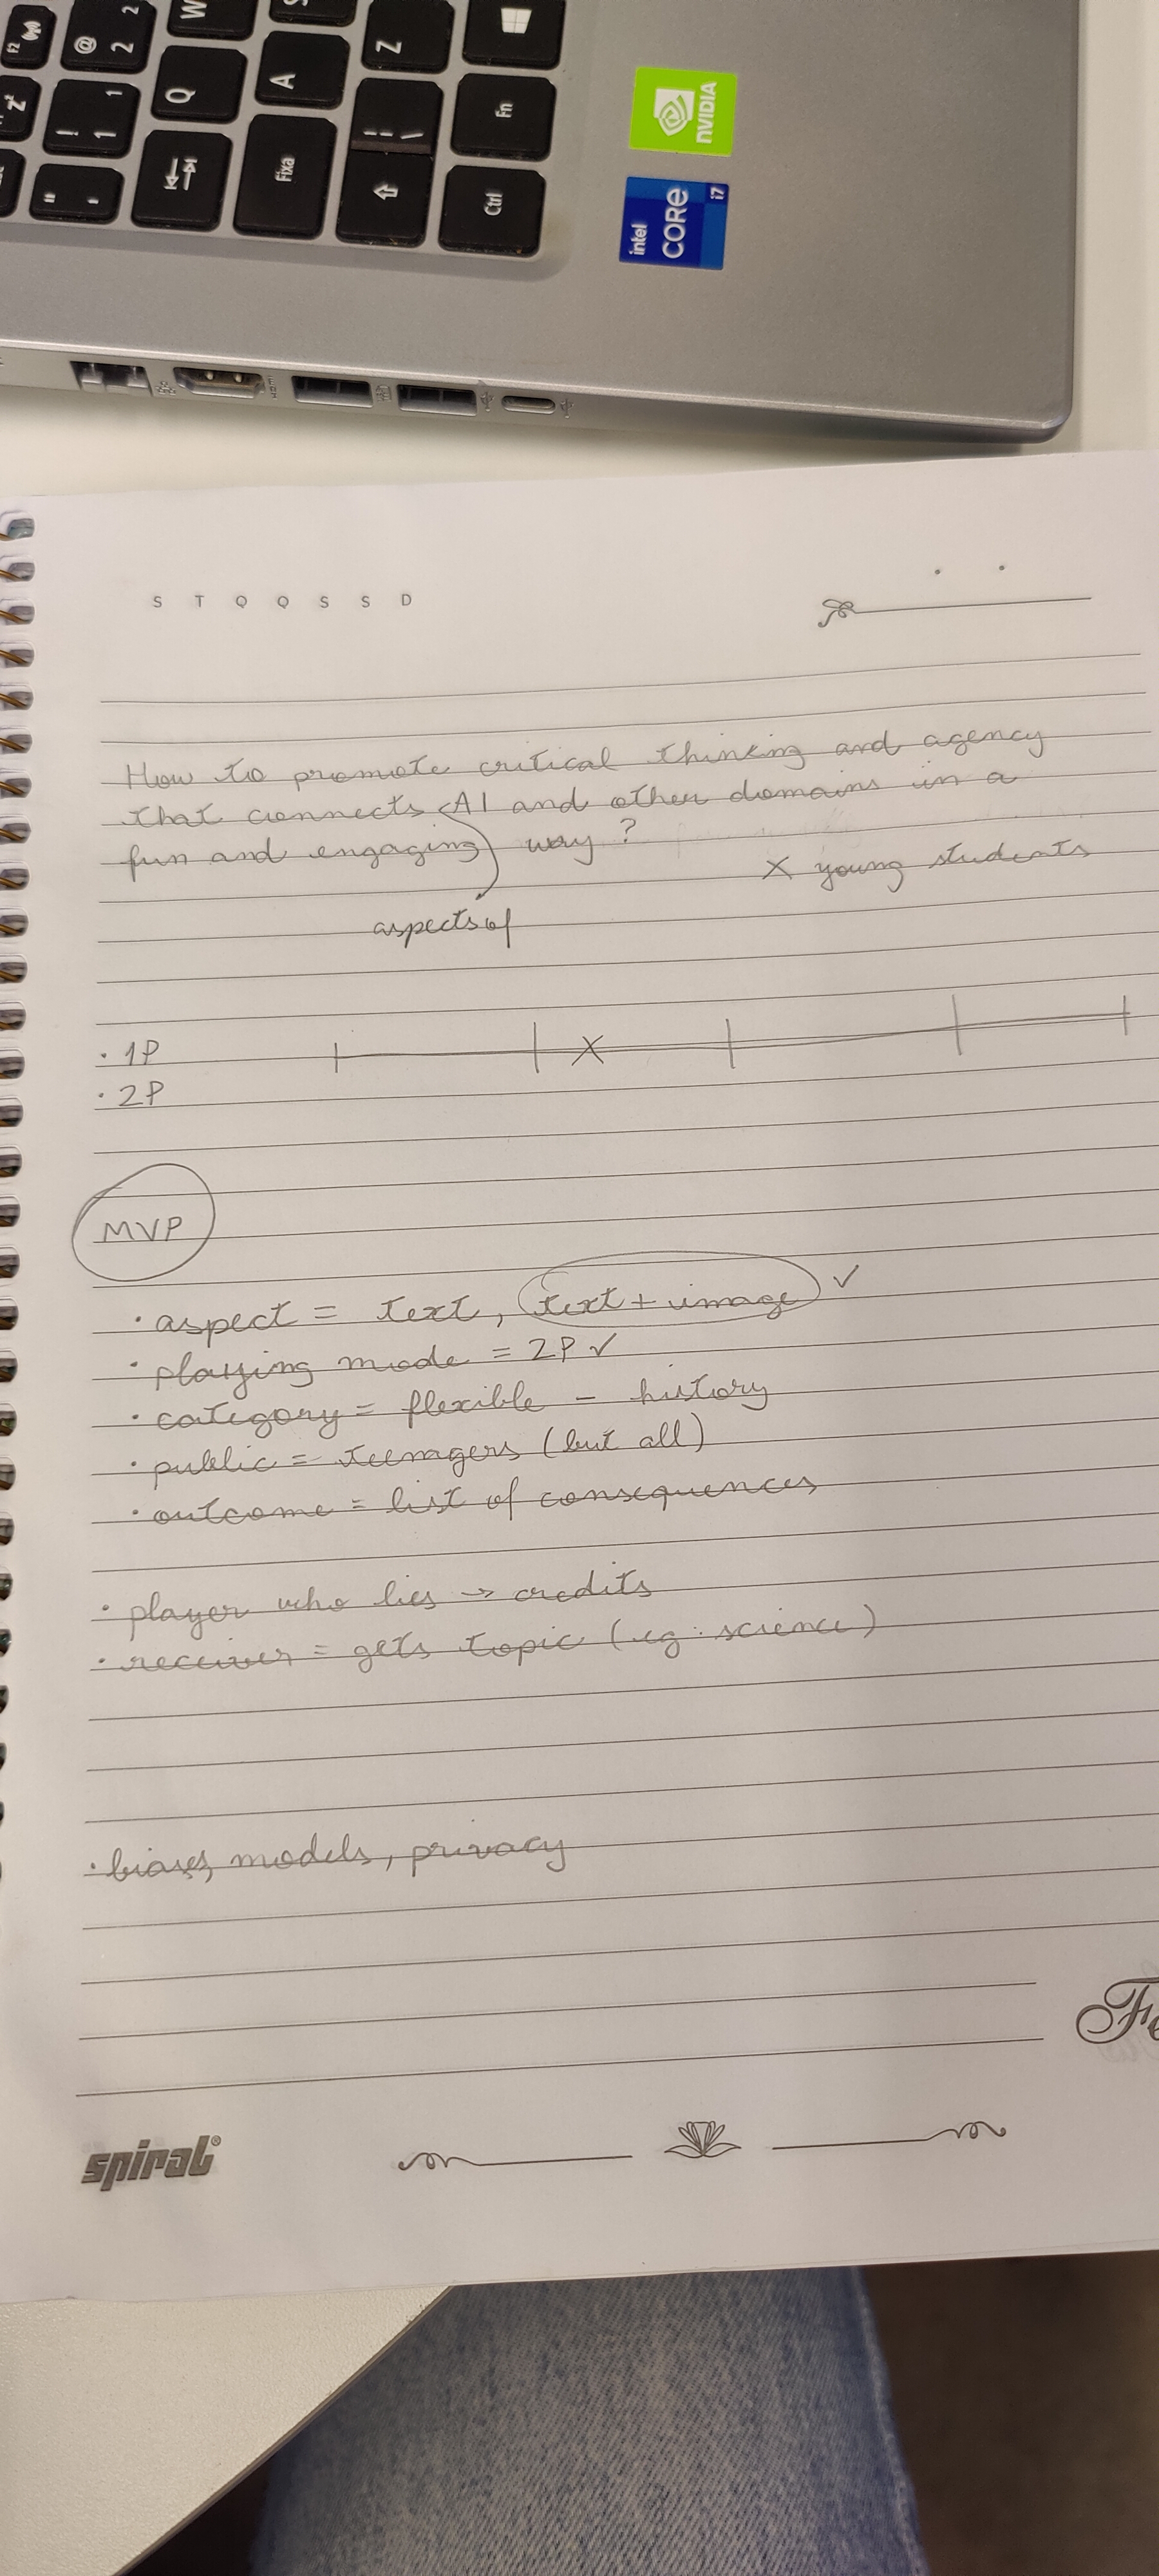 F2
Z
@
2
2
W
S
Z
!
1
1
Q
A
|
\
Fn
"
'
Fixa
Ctrl
NVIDIA
intel
CORE
i7
S T Q Q S S D
How to promote critical thinking and agency
that connects AI and other domains in a
fun and engaging way ?
X young students
aspects of
· 1P
X
· 2P
MVP
· aspect = text, text + image ✓
· playing mode = 2P ✓
· category = flexible - history
· public = teenagers (but all)
· outcome = list of consequences
· player who lies → credits
· receiver = gets topic (eg: science)
· biases, models, privacy
Fe
spiral®